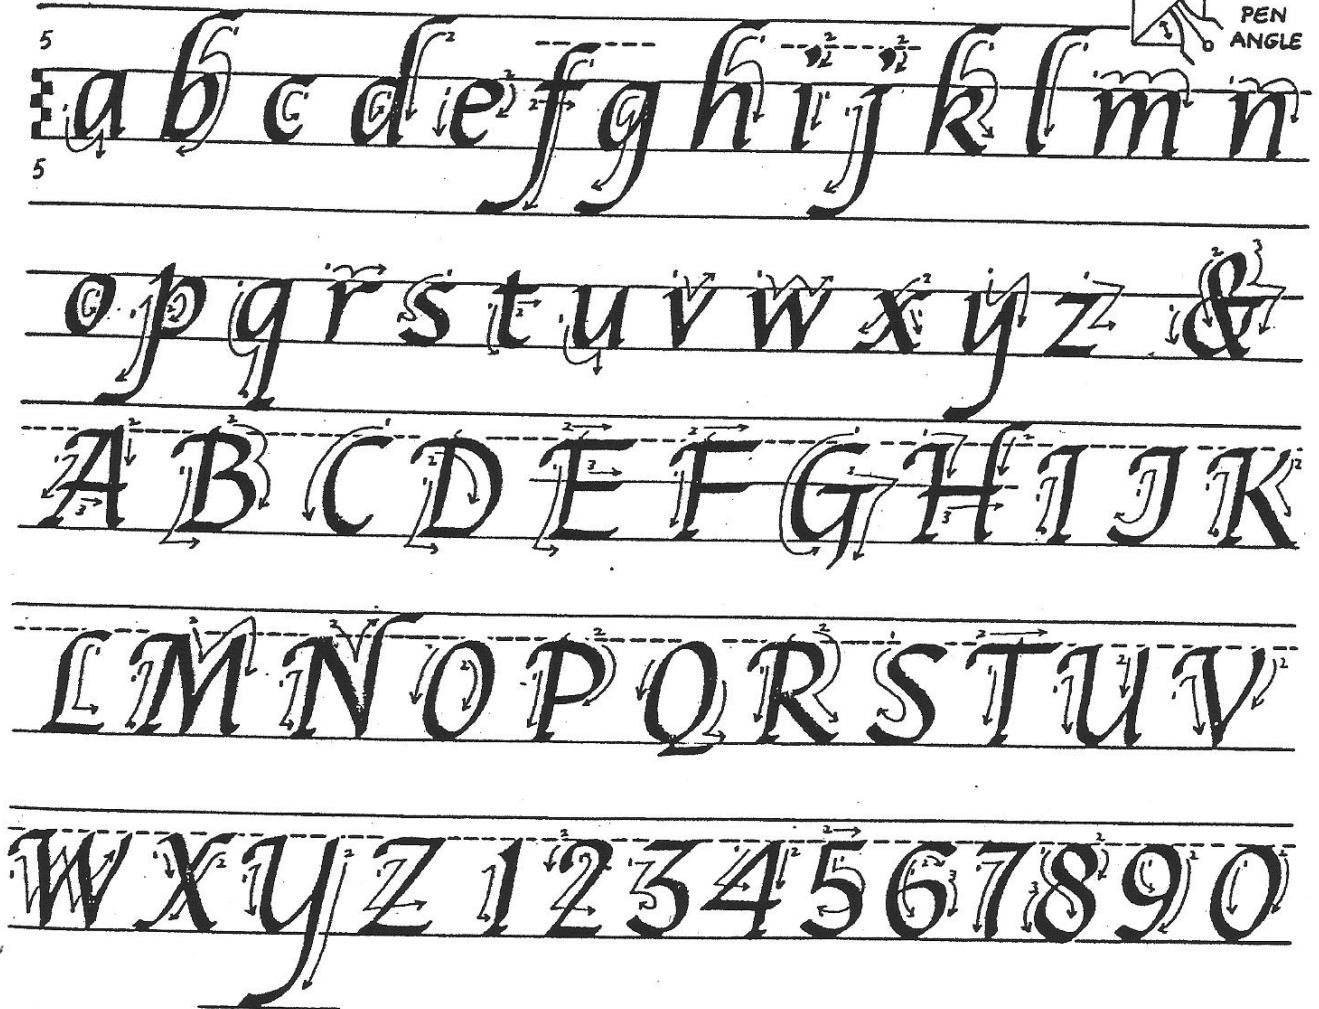 PEN
ANGLE
5
a b c d e f g h i j k l m n
5
o p q r s t u v w x y z &
A B C D E F G H I J K
L M N O P Q R S T U V
W X Y Z 1 2 3 4 5 6 7 8 9 0